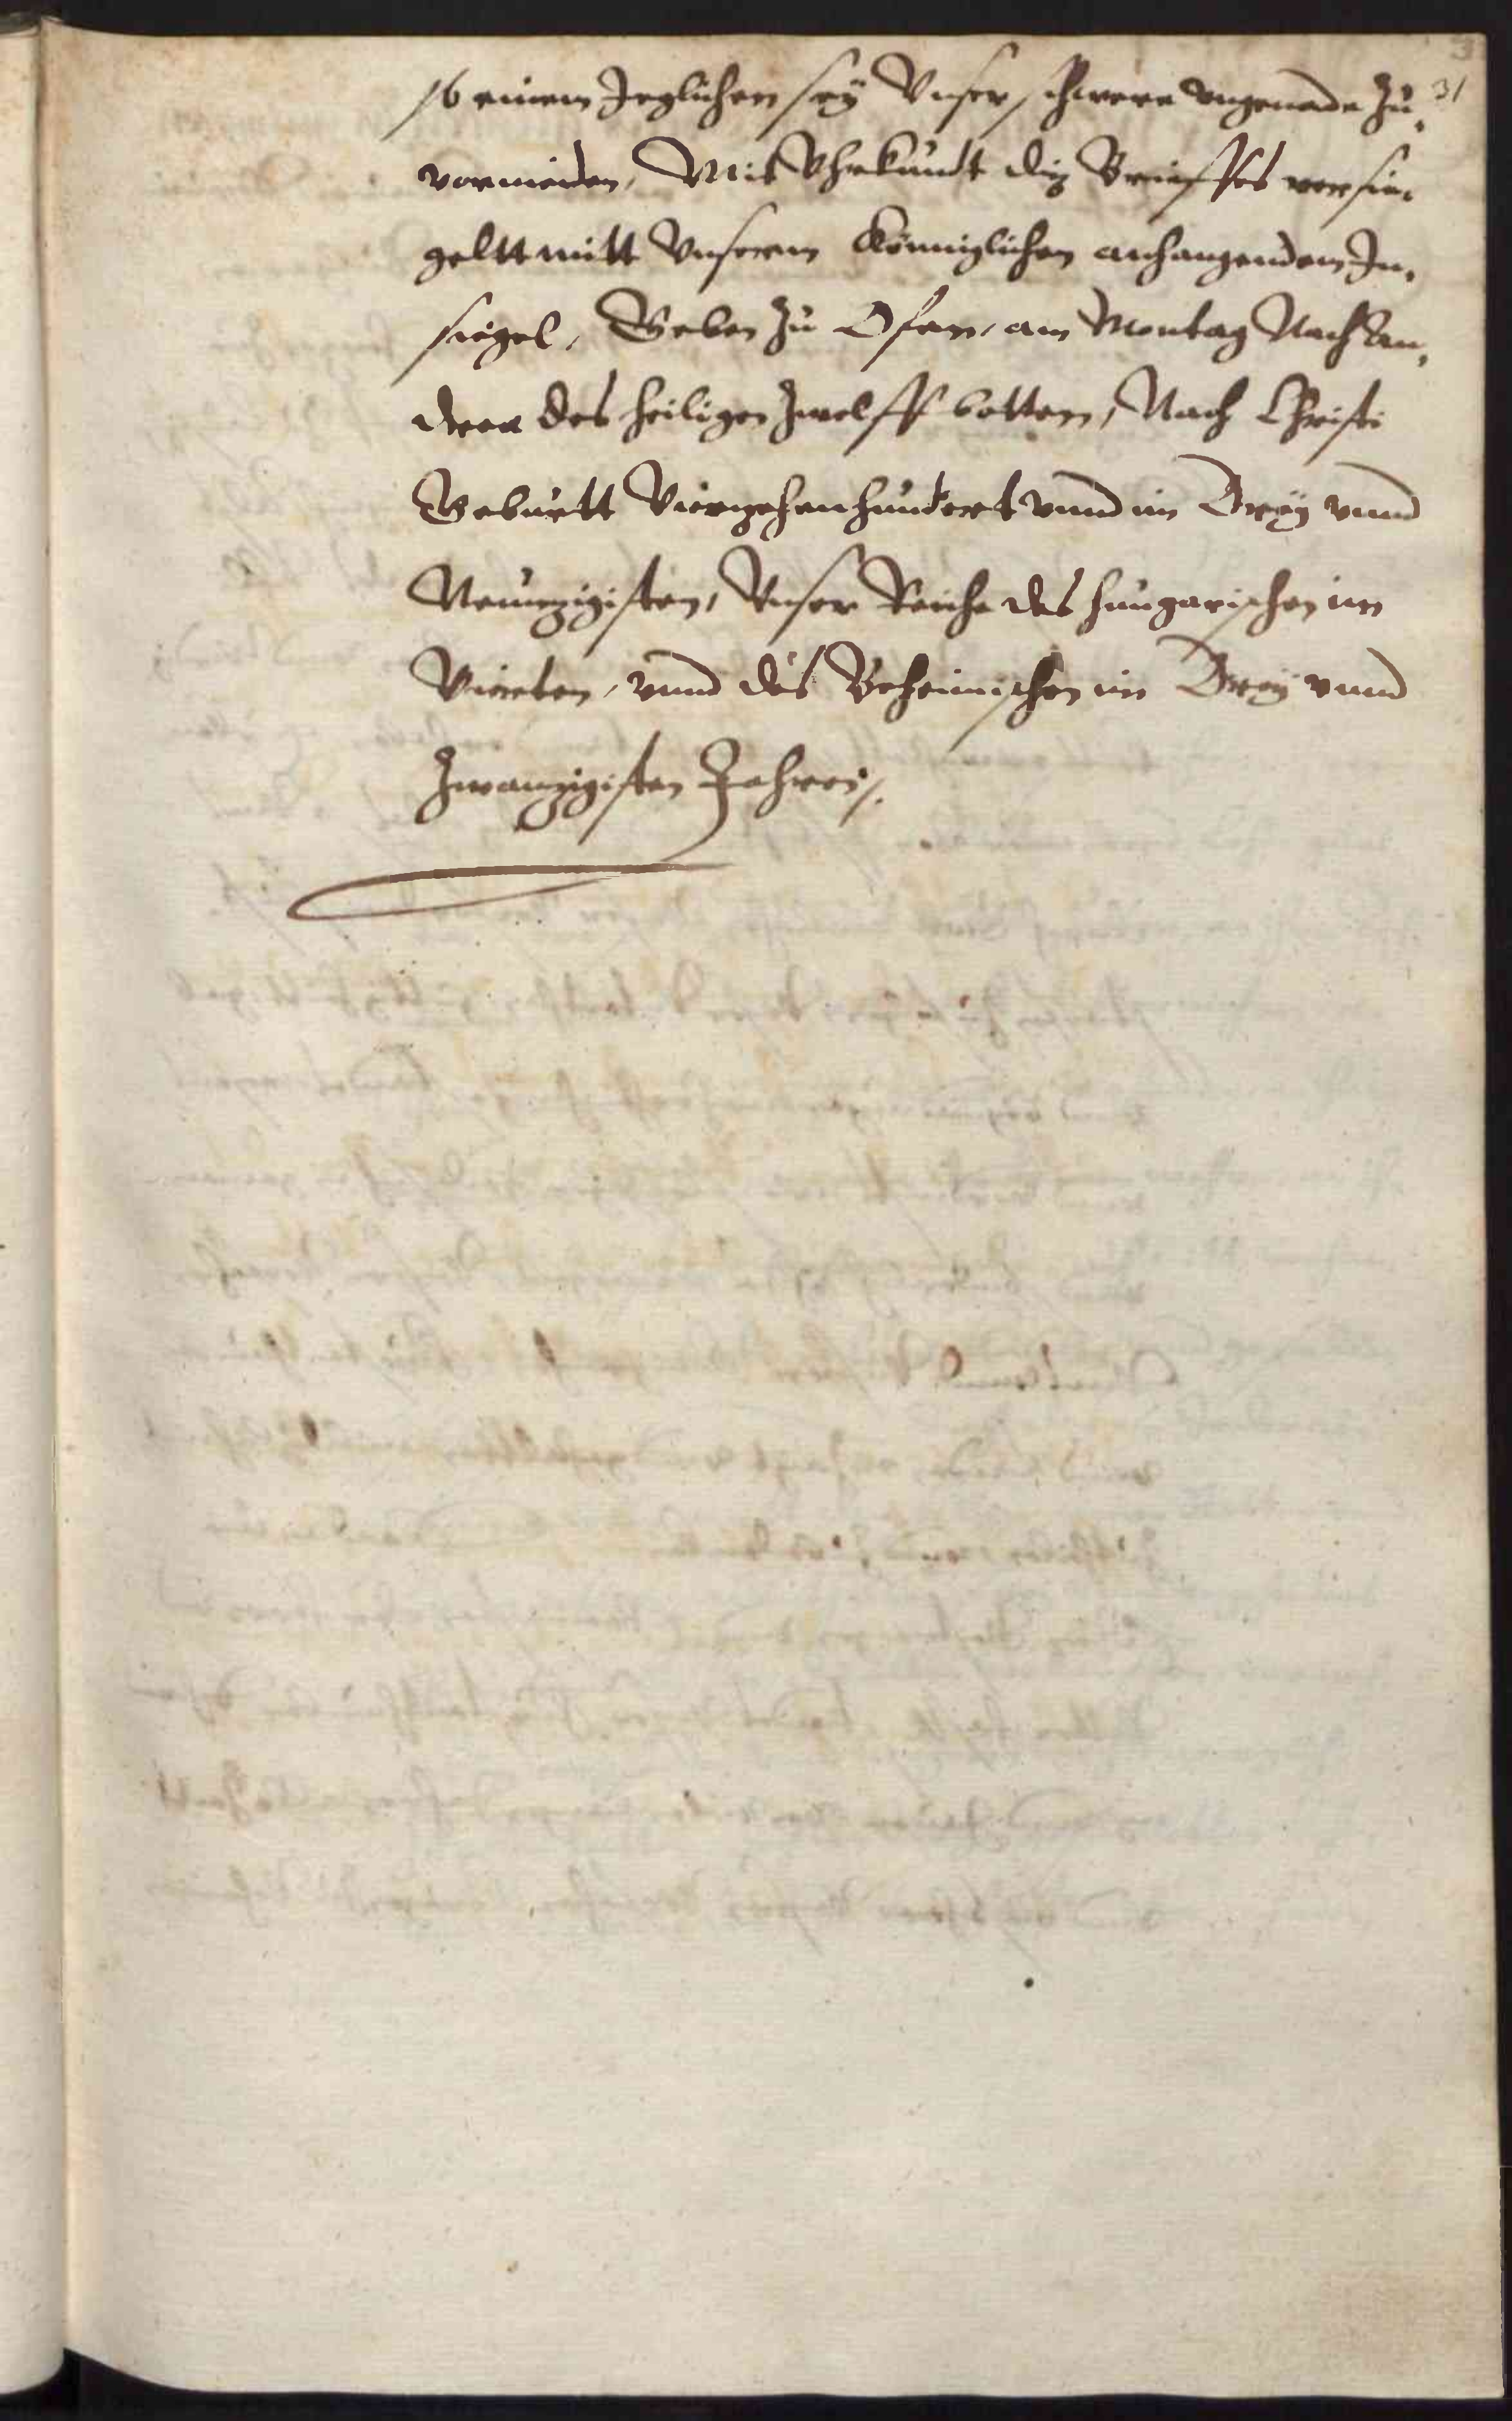 31
so einem Jeglichen seÿ Vnser schwere vngenade zu
vormeiden, Mit Vhrkundt diß Brieffes versie,
geltt mitt Vnserm Königlichen anhangendem In,
siegel, Geben zu Ofen, am Montag Nach An,
dreæ des heiligen Zwelffbotten, Nach Christi
Geburtt Vierzehenhundert vnnd im Dreÿ vnnd
Neunzigisten, Vnser Reiche des hungarischen im
Vierten, vnnd des Behemischen im Dreÿ vnnd
Zwanzigisten Jahren.